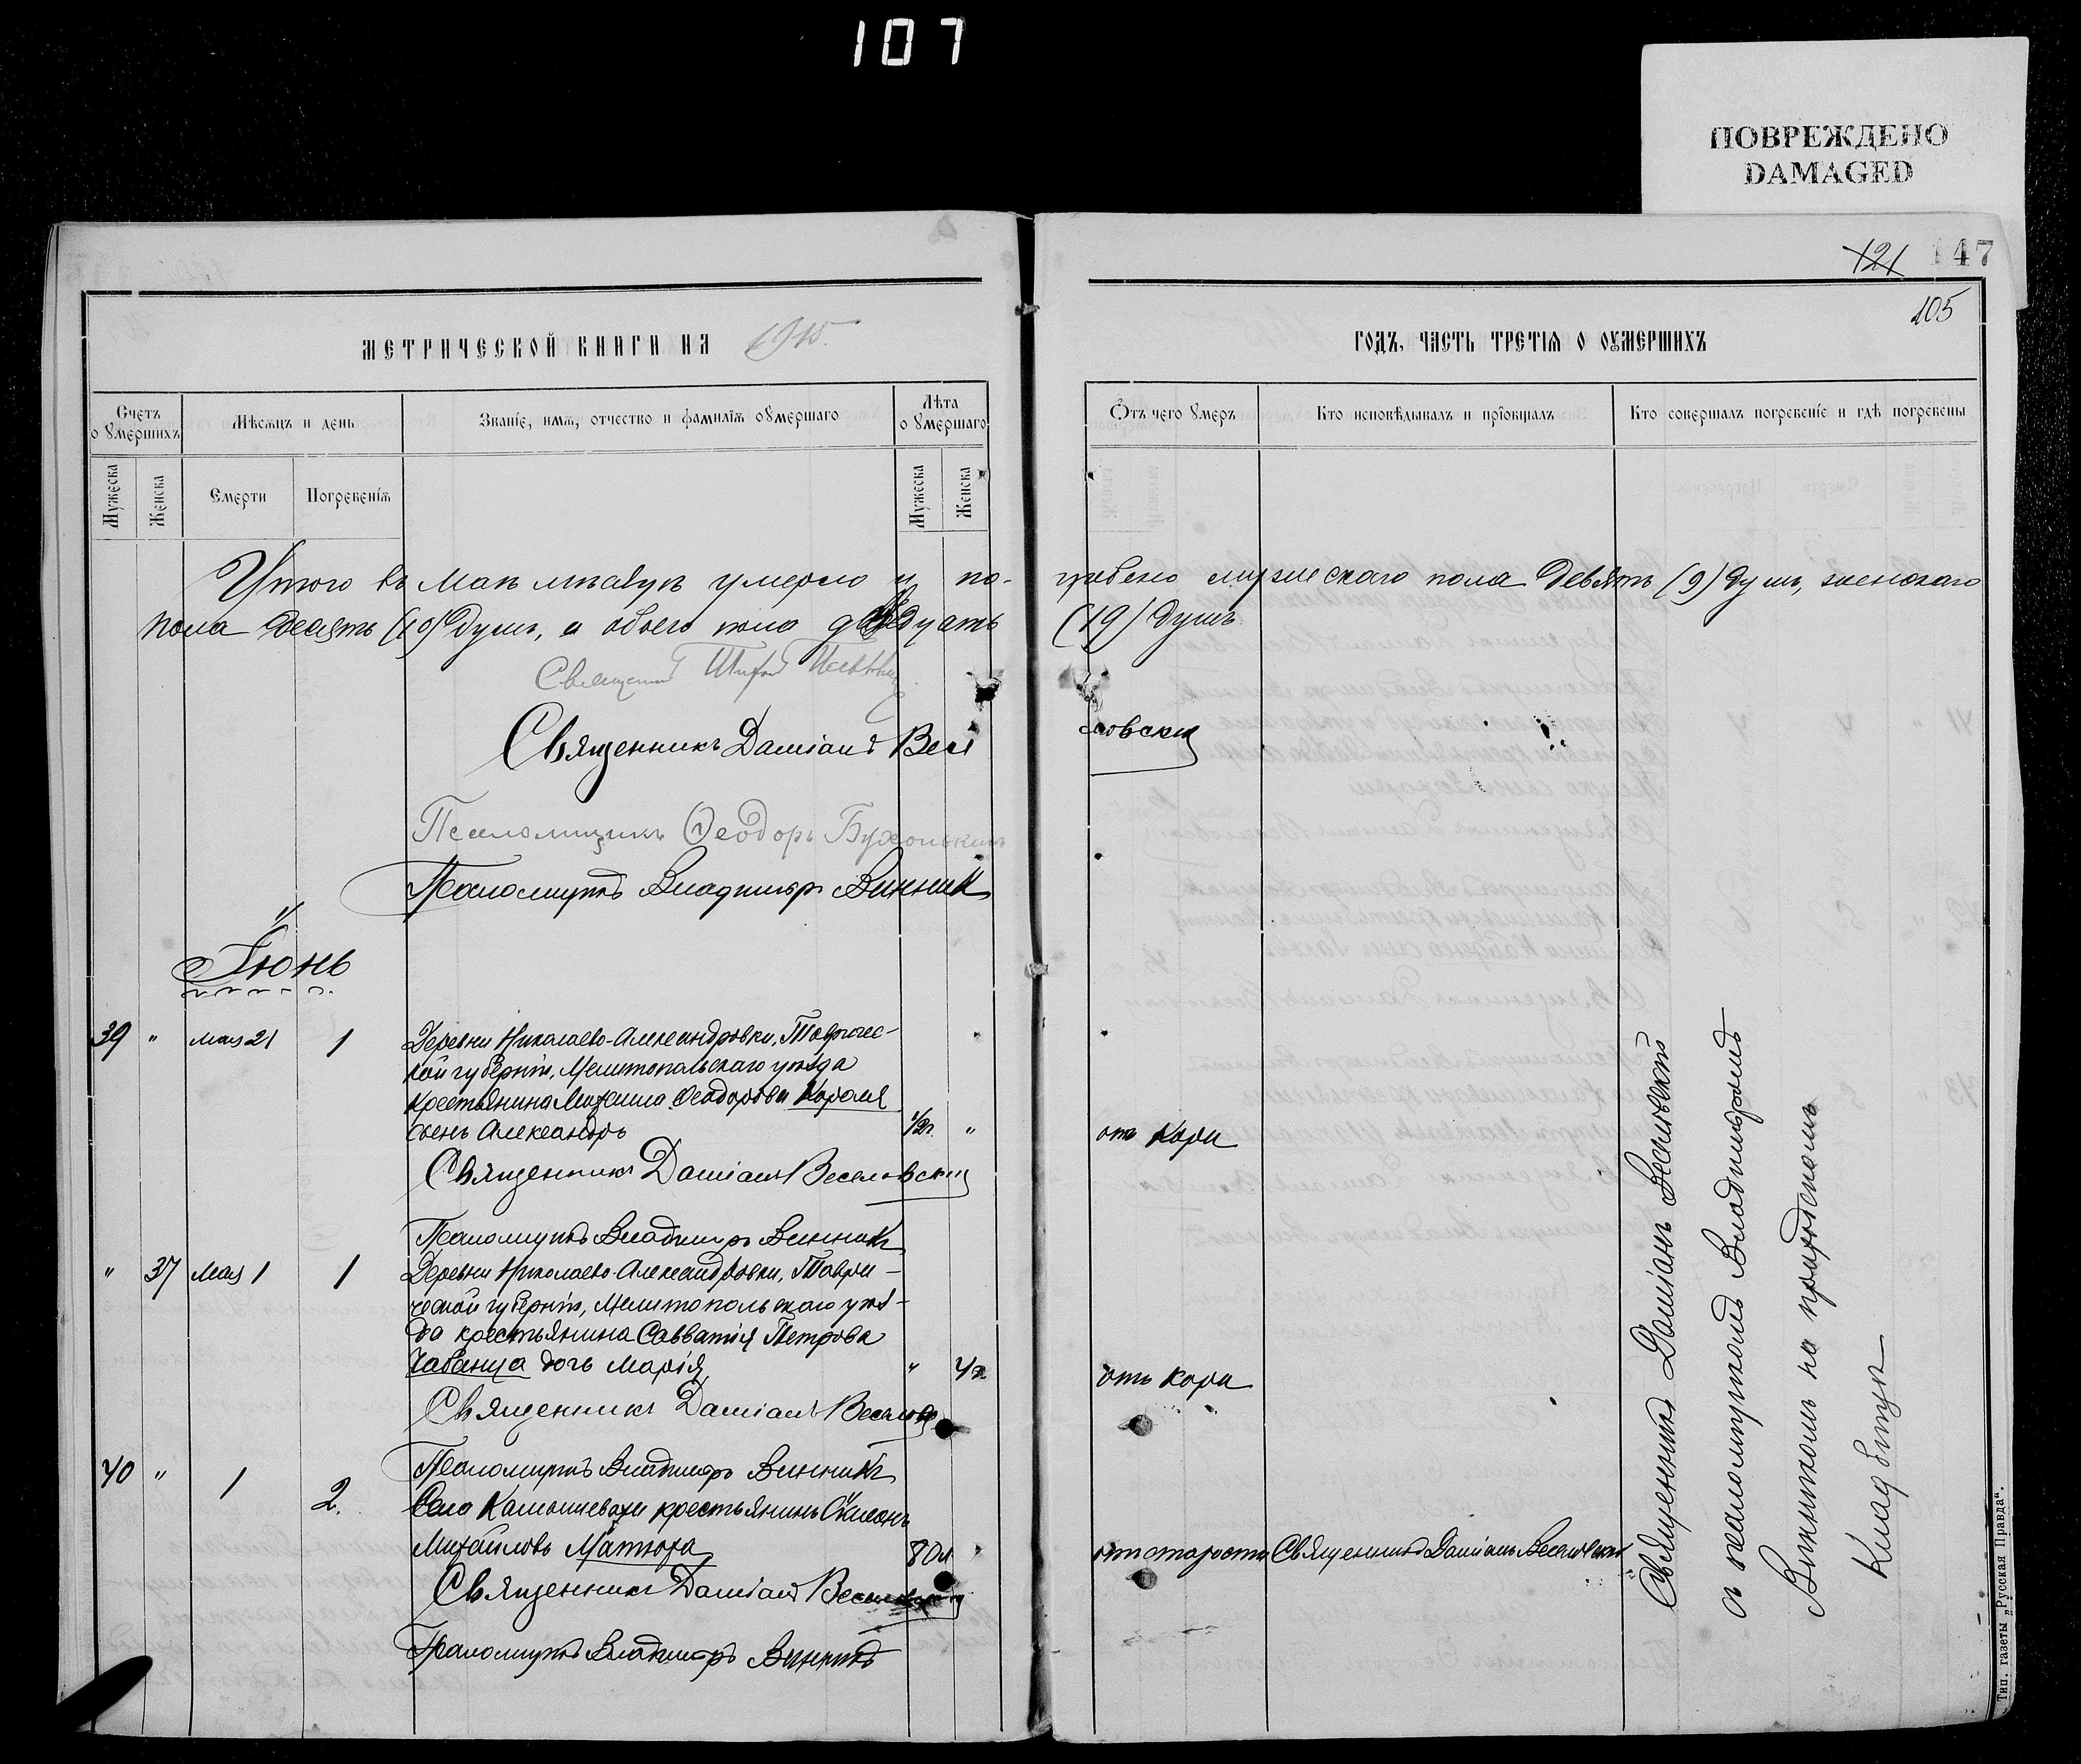 107
ПОВРЕЖДЕНО
DAMAGED
121 147
105
МЕТРИЧЕСКОЙ КНИГИ НА 1915
ГОДЪ, ЧАСТЬ ТРЕТІѦ О ОУМЕРШИХЪ
Счетъ оумершихъ
Мѣсѧцъ и день
Званіе, имѧ, отчество и фамиліѧ оумершаго
Лѣта оумершаго
Ѿтъ чего умеръ
Кто исповѣдывалъ и пріобщалъ
Кто совершалъ погребеніе и гдѣ погребены
Мужеска
Женска
Смерти
Погребеніѧ
Мужеска
Женска
Итого въ Маѣ мѣсяцѣ умерло и по-гребено мужескаго пола девять (9) душъ, женскаго
пола десять (10) душъ, а обоего пола (19) душъ
Священникъ
Священникъ Даміанъ Веселовскій
Псаломщикъ Ѳеодоръ
Псаломщикъ Владиміръ Винникъ
Іюнь
39 " мая 21 1 Деревни Николаево-Александровки, Тавриче-
кой губерніи, Мелитопольскаго уѣзда
крестьянина Михаила Ѳеодорова Короля
сынъ Александръ 1/2 г. " отъ кори
Священникъ Даміанъ Веселовскій
Псаломщикъ Владиміръ Винникъ
" 37 мая 1 1 Деревни Николаево-Александровки, Таври-
ческой губерніи, Мелитопольскаго уѣз-
да крестьянина Савватія Петрова
Чабанца дочь Марія " отъ кори
Священникъ Даміанъ
Псаломщикъ Владиміръ Винникъ
40 " 1 2. Села Камышевахи крестьянинъ Симеонъ
Михайловъ Матюха 80 л " отъ старости Священникъ Даміанъ Веселовскій
Священникъ Даміанъ Веселовскій
Псаломщикъ Владиміръ Винникъ
Священникъ Даміанъ Веселовскій
съ псаломщикомъ Владиміромъ
Винникомъ на приходскомъ
кладбищѣ
Тип. газеты „Русская Правда“.